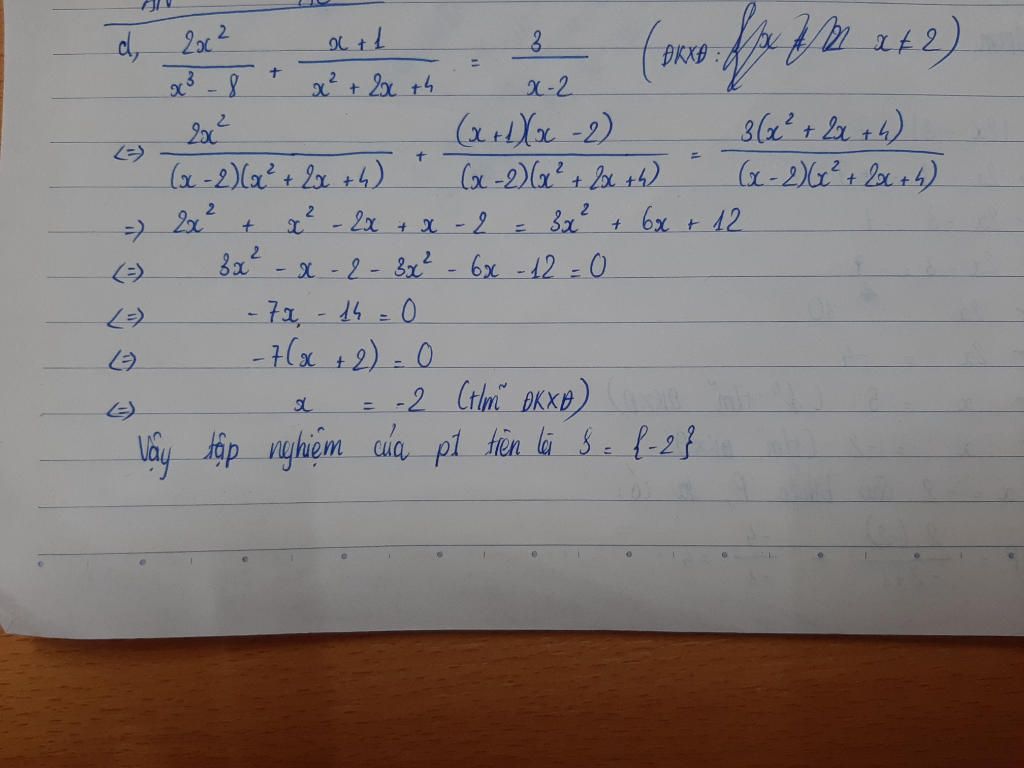 d, 2x²/(x³ - 8) + (x + 1)/(x² + 2x + 4) = 3/(x - 2) (ĐKXĐ: x ≠ 2)
<=> 2x²/((x - 2)(x² + 2x + 4)) + (x + 1)(x - 2)/((x - 2)(x² + 2x + 4)) = 3(x² + 2x + 4)/((x - 2)(x² + 2x + 4))
=> 2x² + x² - 2x + x - 2 = 3x² + 6x + 12
<=> 3x² - x - 2 - 3x² - 6x - 12 = 0
<=> -7x - 14 = 0
<=> -7(x + 2) = 0
<=> x = -2 (t/m ĐKXĐ)
Vậy tập nghiệm của pt trên là S = {-2}